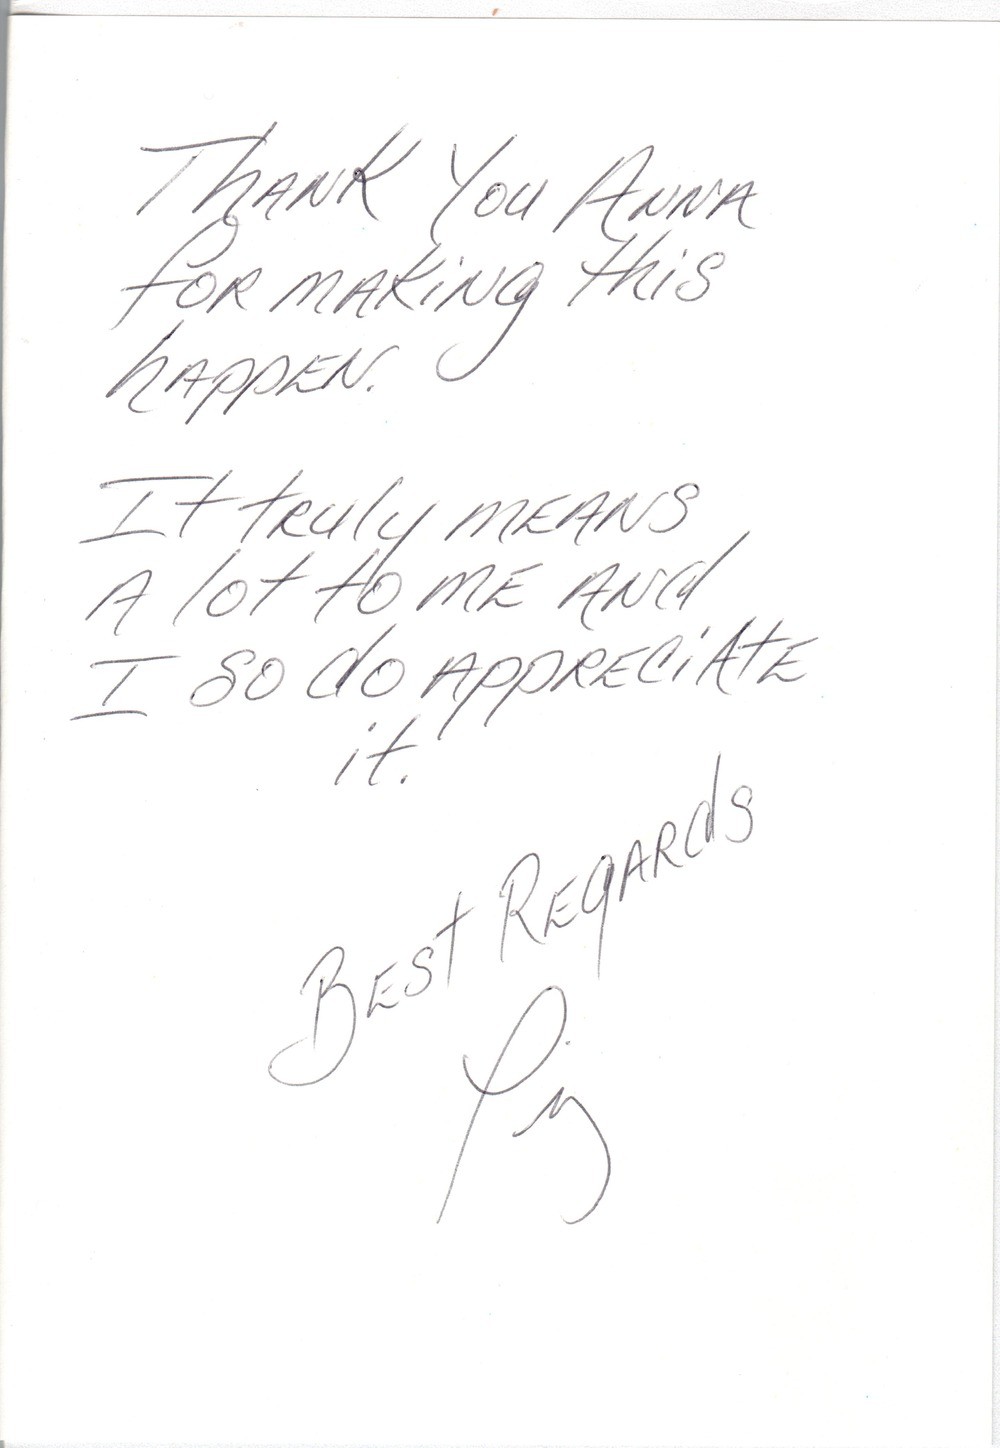 Thank You Anna
for making this
happen.
It truly means
a lot to me and
I so do appreciate
it.
Best Regards